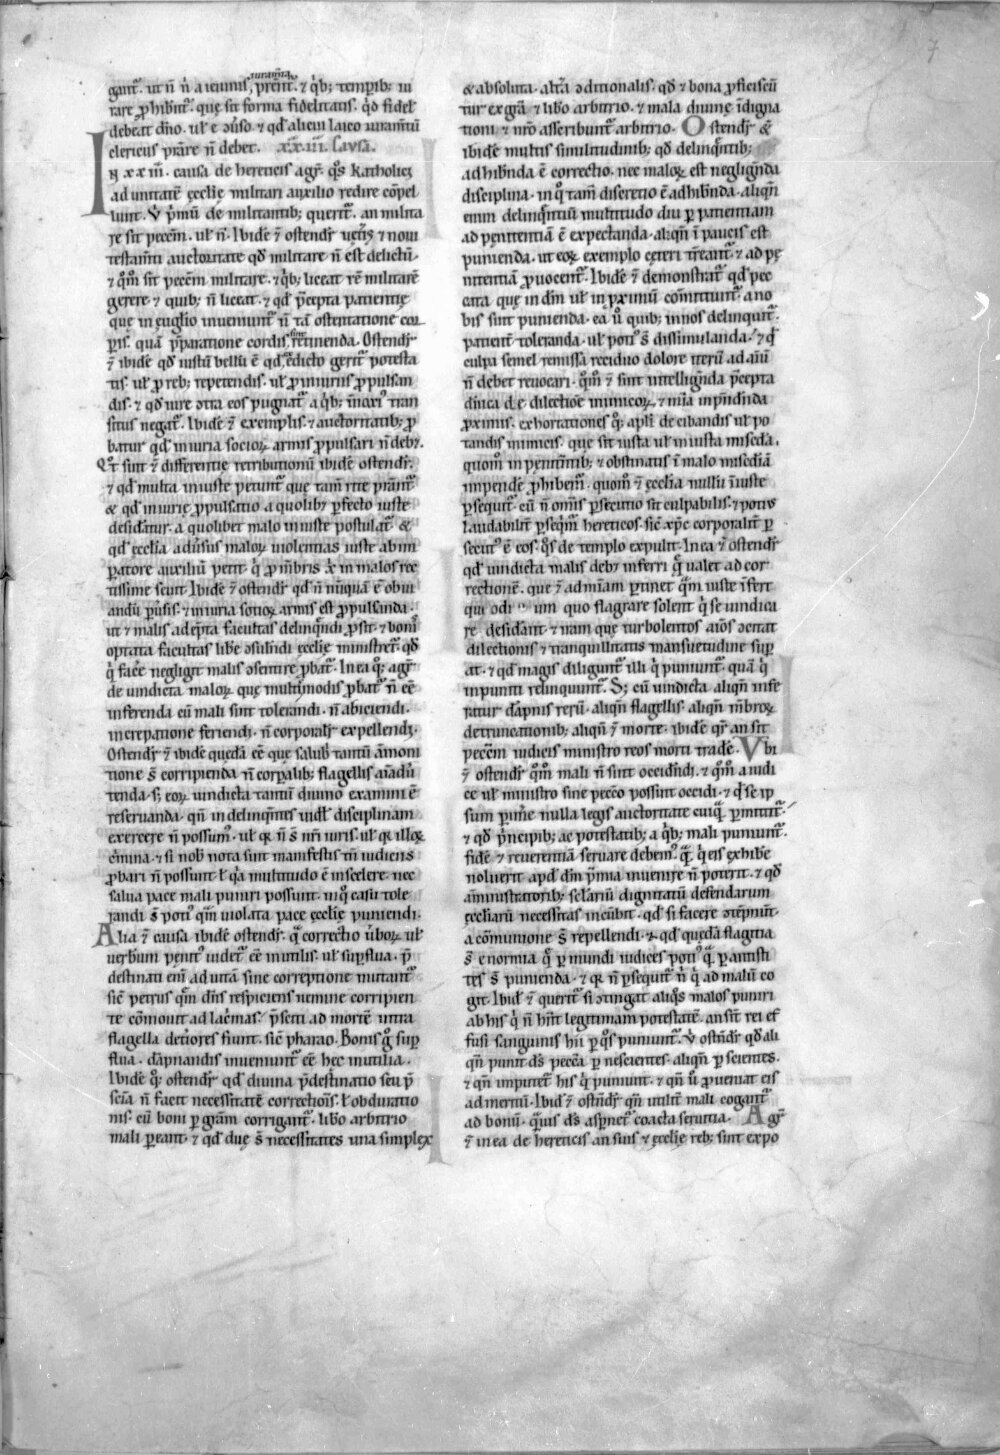 7
iuram̄ta
gant᷑. ut ñ ñ a ieiunis p̄rent᷑. ⁊ q̇b; temp̄ib; iu
rare ꝓhibent᷑. quę sit forma fidelitatis. q̇d fidel᷑
debeat dn̄o. ul᷑ e ꝯũso ⁊ qd᷑ alicui laico iuram̄tū
clericus p̄rare ñ debet. xx.iii. Causa.
IN xxiii. causa de hereticis agr̄. q̇s katholic᷑
ad unitatē ęcclīę militari auxilio redire cōpel
lunt. V̇ p̄mū de militantib; querit᷑. an milita
re sit peccm̄. ul᷑ ñ. Ibidē ⁊ ostendr̄ uet᷑is ⁊ noui
testam̄ti auctoritate qd᷑ militare ñ est delictū.
⁊ qm̄ sit peccm̄ militare. ⁊ q̇b; liceat rē militarē
gerere. ⁊ quib; ñ liceat. ⁊ qd᷑ p̄cepta patientię
que in euglio inueniunt᷑ ñ tā ostentatione cor
poris. quā p̄paratione cordis s̄ retinenda. Ostendr̄
⁊ ibidē qd᷑ iustū bellū ē qd᷑ edicto gerit᷑ potesta
tis. ul᷑ ꝓ reb; repetendis. ul᷑ ꝓ iniuriis ꝓpulsan
dis. ⁊ qd᷑ iure ꝯtra eos pugnat᷑ a q̇b; innoxi᷒ tran
situs negat᷑. Ibidē ⁊ exemplis. ⁊ auctoritatib; ꝓ
batur qd᷑ iniuria socioꝝ armis ꝓpulsari ñ deb;.
Qt̄ sint ⁊ differentię retributionū ibidē ostendr̄.
⁊ qd᷑ multa iniuste petunt᷑ que tam̄ rite p̄rant᷑
& qd᷑ iniurię ꝓpulsatio a quolib; ꝑfecto iuste
desidat᷑. a quolibet malo iniuste postulat᷑ &
qd᷑ ęcclīa aduersus maloꝝ uiolentias iuste ab im
ꝑatore auxiliū petit. q̇ ꝓ mēbris x̄i in malos rec
tissime seuit. Ibidē ⁊ ostendr̄ qd᷑ ñ nūquā ē obui
andū ꝑuersis. ⁊ iniuria socioꝝ armis est ꝓpulsanda.
ut ⁊ malis adep̄ta facultas delinq̄ndi ꝓsit. ⁊ bonis
optata facultas libē ꝯsulendi ęcclīę ministret᷑. qd᷑
q̇ facē negligit malis ꝯsentire ꝓbat᷑. In ea q̄; agr̄
de uindicta maloꝝ quę multimodis ꝓbat᷑ ñ ēē
inferenda cū mali sint tolerandi. ñ abiciendi.
increpatione feriendi. ñ corporalit᷑ expellendi.
Ostendr̄ ⁊ ibidē quedā ēē que salub᷑ tantū āmoni
tione s̄ corripienda ñ corꝑalib; flagellis aīaduer
tenda. s; eoꝝ uindicta tantū diuino examini ē
reseruanda. qn̄ in delinq̄ntes iudr̄ disciplinam
exercere ñ possum᷒. ul᷑ qr ñ s̄ nr̄i iuris. ul᷑ qr illoꝝ
cr̄mina. ⁊ si nob᷑ nota sunt manifestis tn̄ iudiciis
ꝓbari ñ possunt. l᷑ q̇a multitudo ē in scelere. nec
salua pace mali puniri possunt. in q̇ casu tole
randi s̄ poti᷒ qm̄ uiolata pace ęcclīę puniendi.
Alia ⁊ causa ibidē ostendr̄. q̄ correctio uerboꝝ ul᷑
uerbum penit᷒ uidet᷑ ēē inutilis. ul᷑ supflua. p̄
destinati eni᷑ ad uitā sine correptione mutant᷑
sic̄ petrus quem dn̄s respiciens nemine corripien
te cōmouit ad lac̄mas. p̄sciti ad mortē intra
flagella det᷑iores fiunt. sic̄ pharao. Bonis g᷑ sup
flua. dāpnandis inueniunt᷑ ēē hec inutilia.
Ibidē q̄; ostendr̄ qd᷑ diuina p̄destinatio seu p̄
scia ñ facit necessitatē correctiōis. l᷑ obduratio
nis. cū boni ꝑ gr̄am corrigant᷑. libo arbitrio
mali ꝑeant. ⁊ qd᷑ duę s̄ necessitates una simplex
& absoluta. alta ꝯditionalis. qd᷑ & bona ꝓficiscun
tur ex gr̄a ⁊ libo arbitrio. ⁊ mala diuinę īdigna
tioni ⁊ nr̄o asscribunt᷑ arbitrio. Ostendr̄ &
ibidē multis similitudinib; qd᷑ delinq̄ntib;
adhib̄nda ē correctio. nec maloꝝ est neglig̃nda
disciplina. in q̇ tam̄ discretio ē adhib̄nda. aliqn̄
enim delinq̄ntiū multitudo diu ꝑ patientiam
ad pęnitentiā ē expectanda. aliqn̄ ī paucis est
punienda. ut eoꝝ exemplo ceteri t᷑reant᷑. ⁊ ad pę
nitentiā ꝓuocent᷑. Ibidē ⁊ demonstrat᷑ qd᷑ pec
cata quę in dm̄ ul᷑ in ꝓximū cōmittunt᷑. a no
bis sunt punienda. ea ů quib; in nos delinquit᷑.
patient᷑ toleranda. ul᷑ poti᷒ s̄ dissimulanda. ⁊ q᷑
culpa semel remissa recidiuo dolore iterū ad aīū
ñ debet reuocari. qm̄ ⁊ sint intellig̃nda p̄cepta
dn̄ica de dilectiōe inimicoꝝ. ⁊ mīa inpēdenda
ꝓximis. exhortationes q̄; apl̄i de cibandis ul᷑ po
tandis inimicis. que sit iusta ul᷑ iniusta misc̄dia.
quom̄ in penitentib; ⁊ obstinatis ī malo misc̄diā
impendē ꝓhibem᷑. quom̄ ⁊ ęcclia nullū īiuste
ꝑsequit᷑. cū ñ om̄is ꝑsecutio sit culpabilis. ⁊ poti᷒
laudabilit᷑ ꝑseqm̄᷑ hereticos. sic̄ xp̄c corporalit᷑ ꝑ
secut᷒ ē eos. q̇s de templo expulit. In ea ⁊ ostendr̄
qd᷑ uindicta malis deb; inferri q̄ ualet ad cor
rectionē. que ⁊ ad mīam ꝑtinet quam iuste īfert
qui odi um quo flagrare solent q̇ se uindica
re desid᷑ant. ⁊ nam que turbolentos aīos ꝯcitat
dilectionis ⁊ tranquillitatis mansuetudine suꝑ
at. ⁊ qd᷑ magis diligunt᷑ illi q̇ puniunt᷑. quā q̇
inpuniti relinquunt᷑. S; cū uindicta aliqn̄ infe
ratur dāpnis rerū. aliqn̄ flagellis. aliqn̄ m̄broꝝ
detruncationib; aliqn̄ ⁊ morte. ibidē qr̄ an sit
peccm̄ iudicis ministro reos morti tradē. Vbi
⁊ ostendr̄ qm̄ mali ñ sint occidendi. ⁊ qm̄ a iudi
ce ul᷑ ministro sine peccō possint occidi. ⁊ qd᷑ se ip
sum ꝑimē nulla legis auctoritate cuiq̄ ꝑmittit᷑.
⁊ qd᷑ p̄ncipib; ac potestatib; a q̇b; mali puniunt᷑.
fidē ⁊ reuerentiā seruare debem᷒. q̄ q̇ eis exhibē
noluerit apd᷑ dm̄ p̄mia inuenire ñ poterit. ⁊ qd᷑
aministratorib; sc̄lariū dignitatū defendarum
ęccliarū necessitas incūbit. qd᷑ si facere ꝯtēps̄int.
a cōmunione s̄ repellendi. ⁊ qd᷑ quedā flagitia
s̄ enormia q̄ ꝑ mundi iudices poti᷒ q̄ ꝑ antisti
tes s̄ punienda. ⁊ qr ñ ꝑsequit᷑ ñ q̇ ad malū co
git. Ibid᷑ ⁊ querit᷑ si ꝯtingat aliq̇s malos puniri
ab his q̇ ñ hn̄t legitimam potestatē. an sint rei ef
fusi sanguinis hii ꝑ q̇s puniunt᷑. V̇ ostēdr̄ qd᷑ ali
qn̄ punit d̄s peccā ꝑ nescientes. aliqn̄ ꝑ scientes.
⁊ qn̄ imputet᷑ his q̇ puniunt. ⁊ qn̄ ů ꝓueniat eis
ad meritū. Ibid᷑ ⁊ ostēdr̄ qn̄ utilit᷑ mali cogant᷑
ad bonū. q̄uis d̄s aspnet᷑ coacta seruitia. Agr̄
⁊ in ea de hereticis an suis ⁊ ęcclię reb; sint expo